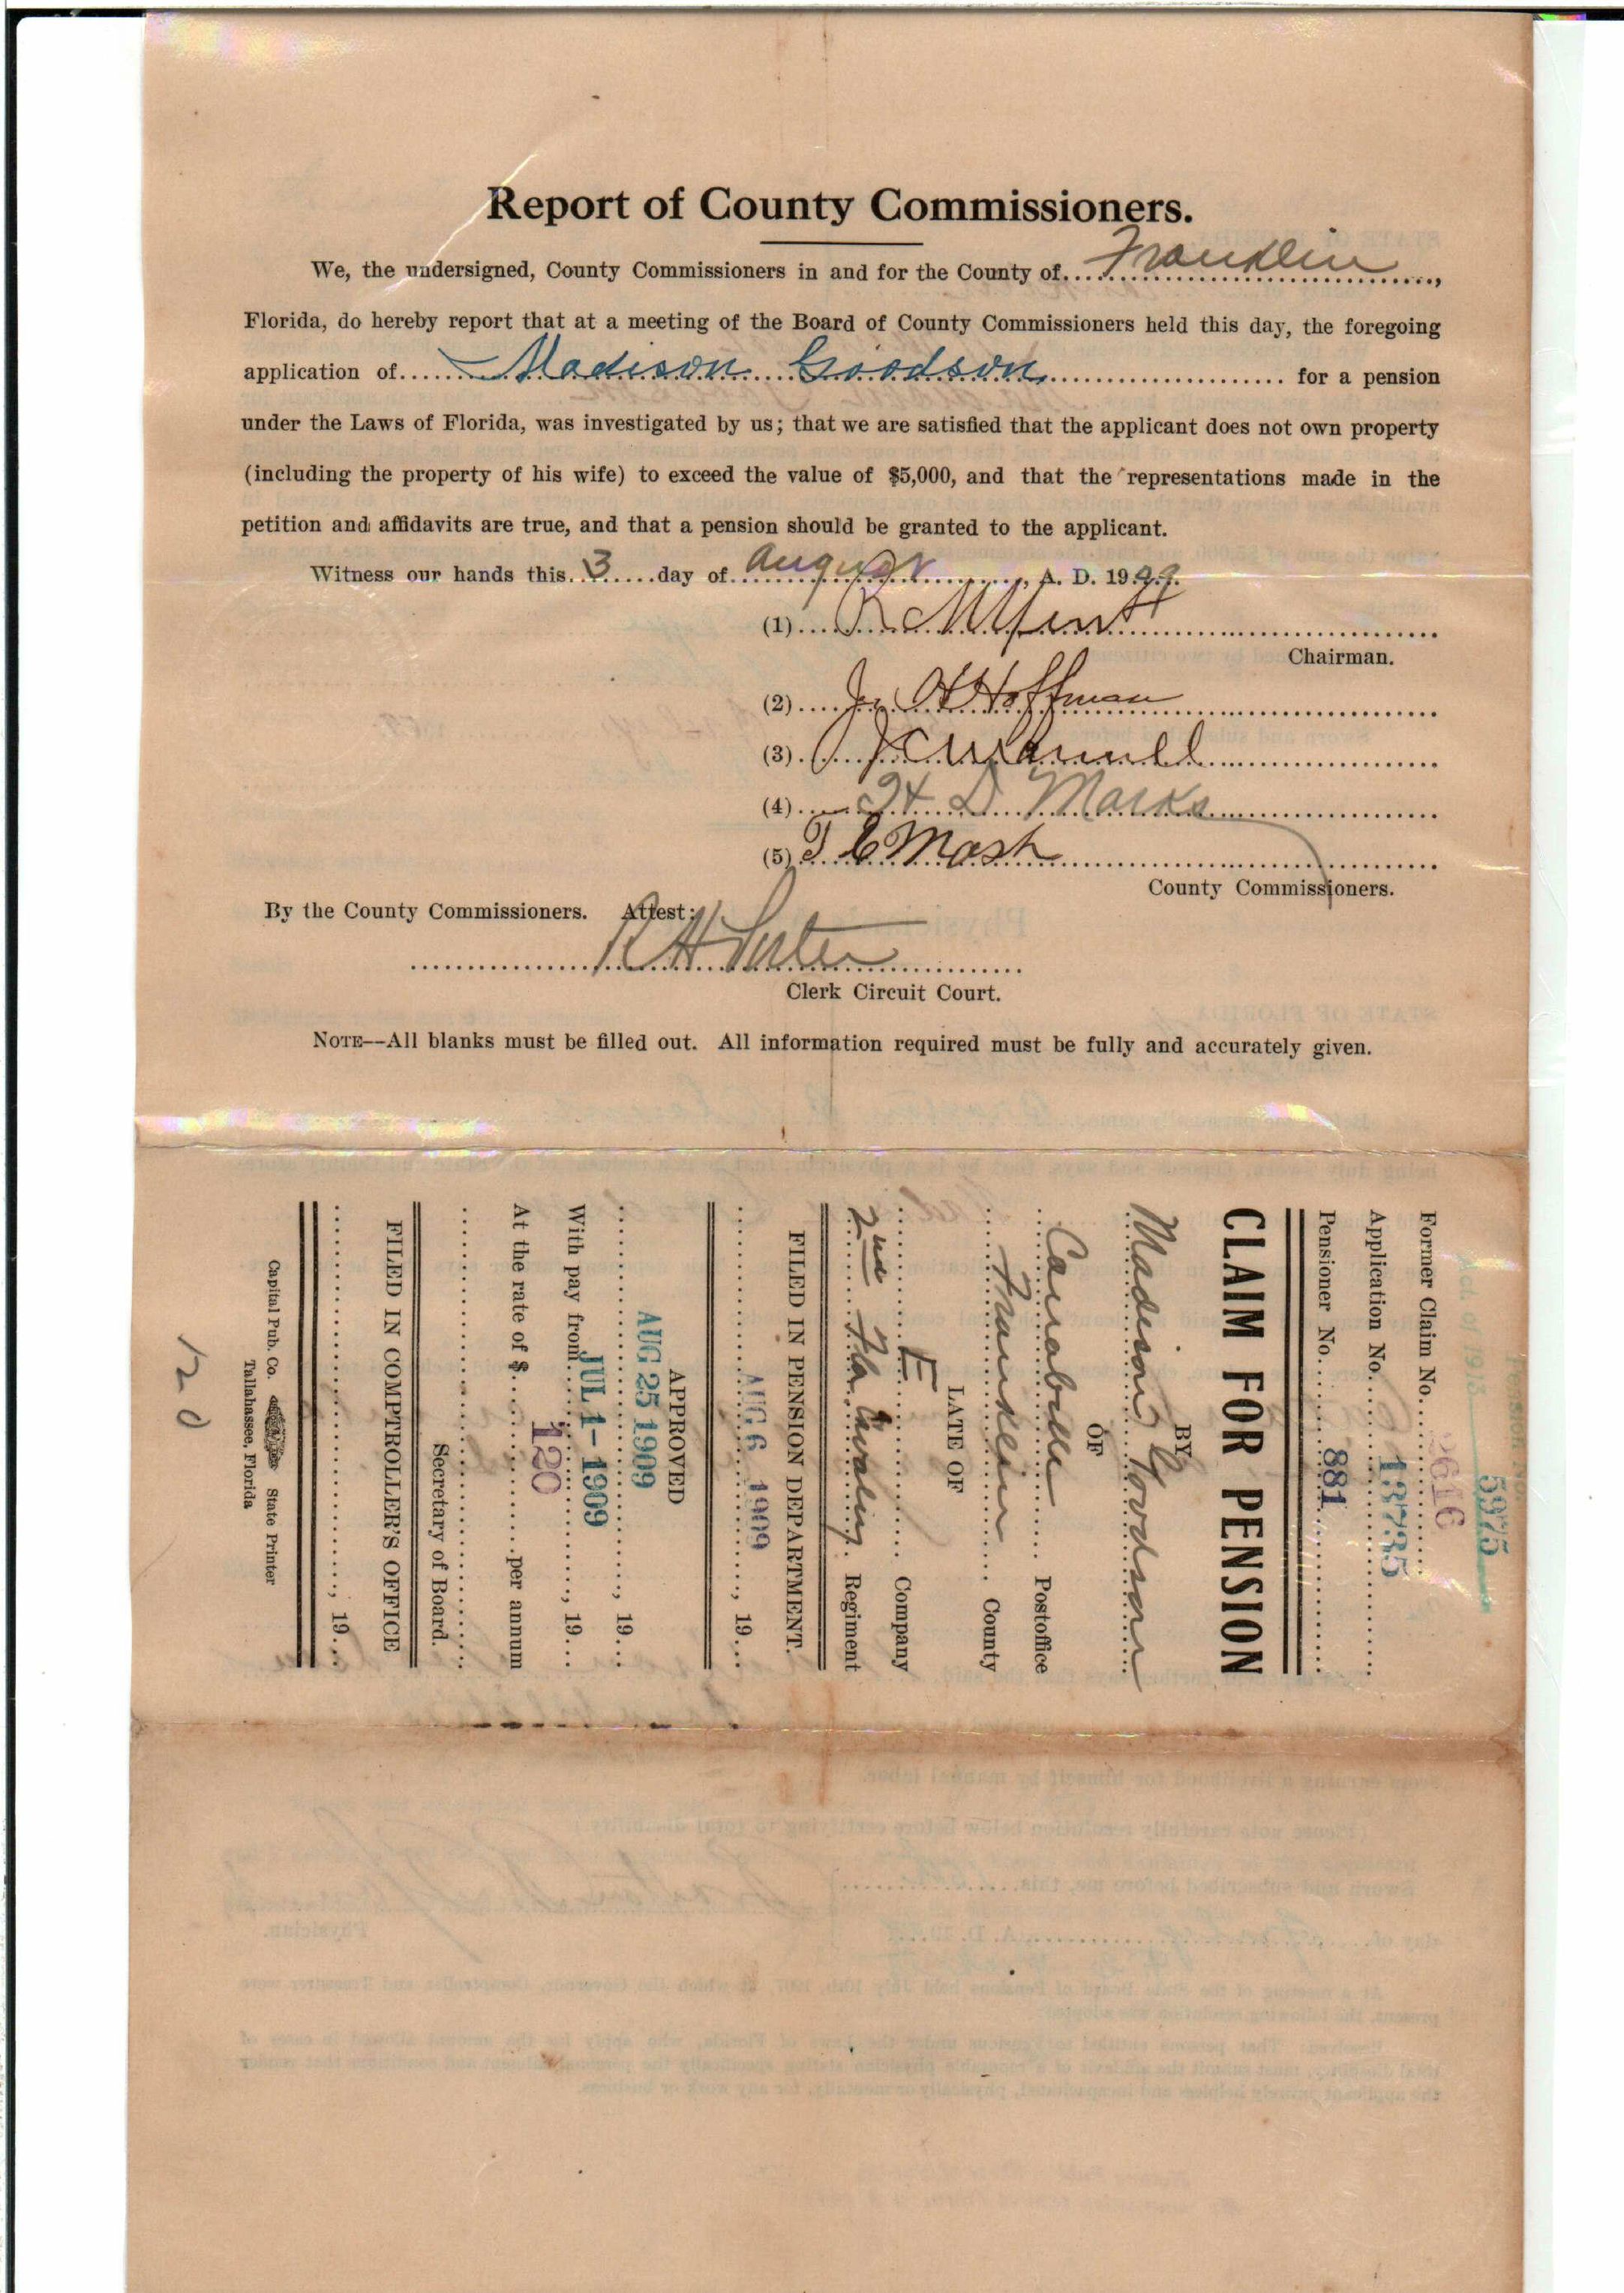 Report of County Commissioners.
We, the undersigned, County Commissioners in and for the County of.... Franklin ....,
Florida, do hereby report that at a meeting of the Board of County Commissioners held this day, the foregoing
application of.... Madison Goodson .... for a pension
under the Laws of Florida, was investigated by us; that we are satisfied that the applicant does not own property
(including the property of his wife) to exceed the value of $5,000, and that the representations made in the
petition and affidavits are true, and that a pension should be granted to the applicant.
Witness our hands this. 3 ....day of. August ...., A. D. 19.09.
(1)....
Chairman.
(2).... Hoffman
(3)....
(4).... H. D. Marks
(5). T C Mash
County Commissioners.
By the County Commissioners. Attest:
R H
Clerk Circuit Court.
NOTE--All blanks must be filled out. All information required must be fully and accurately given.
Act of 1913
Pension No.
5975
Former Claim No.... 2616
Application No.... 13735
Pensioner No.... 881
CLAIM FOR PENSION
BY
Madison Goodson
OF
Carrabelle .... Postoffice
Franklin .... County
LATE OF
E .... Company
2nd Fla. Cavalry. Regiment
FILED IN PENSION DEPARTMENT.
AUG 6 1909 ...., 19...
APPROVED
AUG 25 1909 ...., 19...
With pay from JUL 1- 1909 ...., 19...
At the rate of $.... 120 ....per annum
Secretary of Board.
FILED IN COMPTROLLER'S OFFICE
...., 19...
Capital Pub. Co. State Printer
Tallahassee, Florida
120